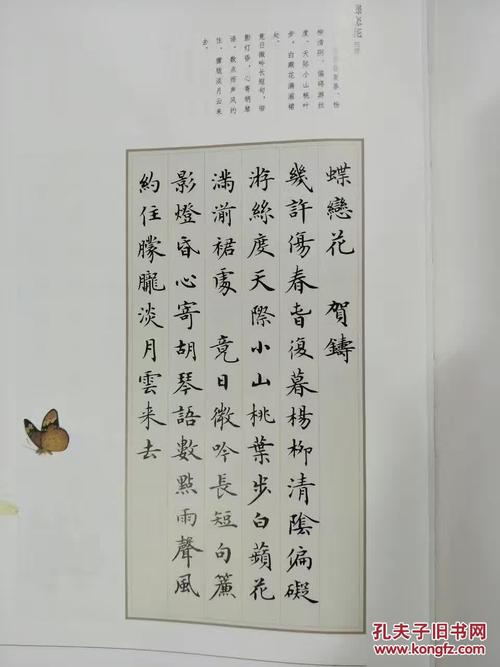 蝶恋花 贺铸
几许伤春春复暮，杨
柳清阴，偏碍游丝
度。天际小山桃叶
步，白蘋花满湔裙
处。
竟日微吟长短句，帘
影灯昏，心寄胡琴
语。数点雨声风约
住，朦胧淡月云来
去。
蝶戀花 賀鑄
幾許傷春旾復暮楊柳清陰偏礙
游絲度天際小山桃葉步白蘋花
滿湔裙處 竟日微吟長短句簾
影燈昏心寄胡琴語數點雨聲風
約住朦朧淡月雲来去
孔夫子旧书网
www.kongfz.com